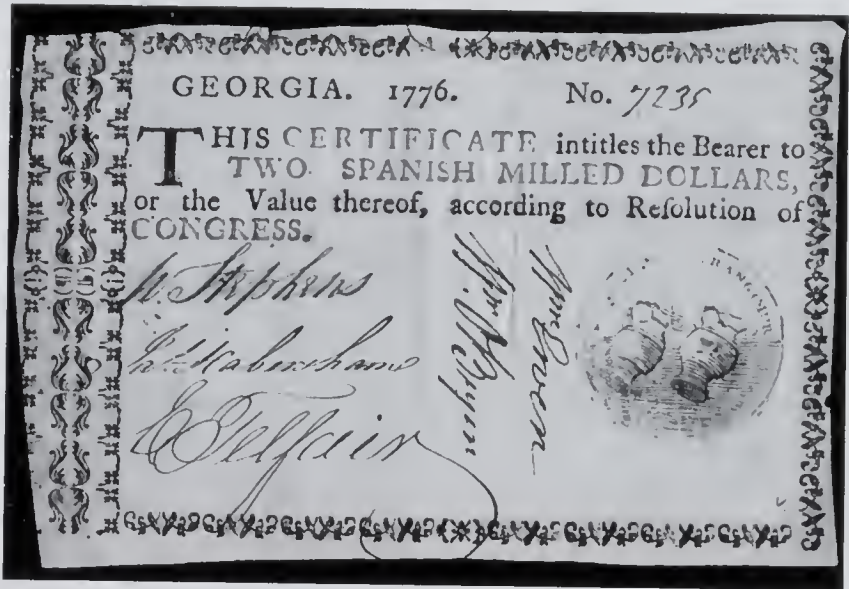 GEORGIA. 1776. No. 7235
THIS CERTIFICATE intitles the Bearer to
TWO SPANISH MILLED DOLLARS,
or the Value thereof, according to Reſolution of
CONGRESS.
W. Stephens
Habersham
E Telfair
Wm Owen